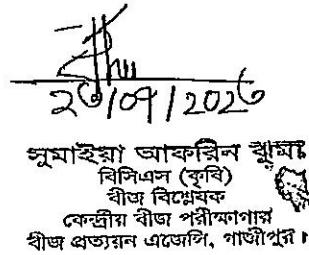 সুমাইয়া আফরিন ঝুমা
বিসিএস (কৃষি)
বীজ বিশ্লেষক
কেন্দ্রীয় বীজ পরীক্ষাগার
বীজ প্রত্যয়ন এজেন্সি, গাজীপুর।